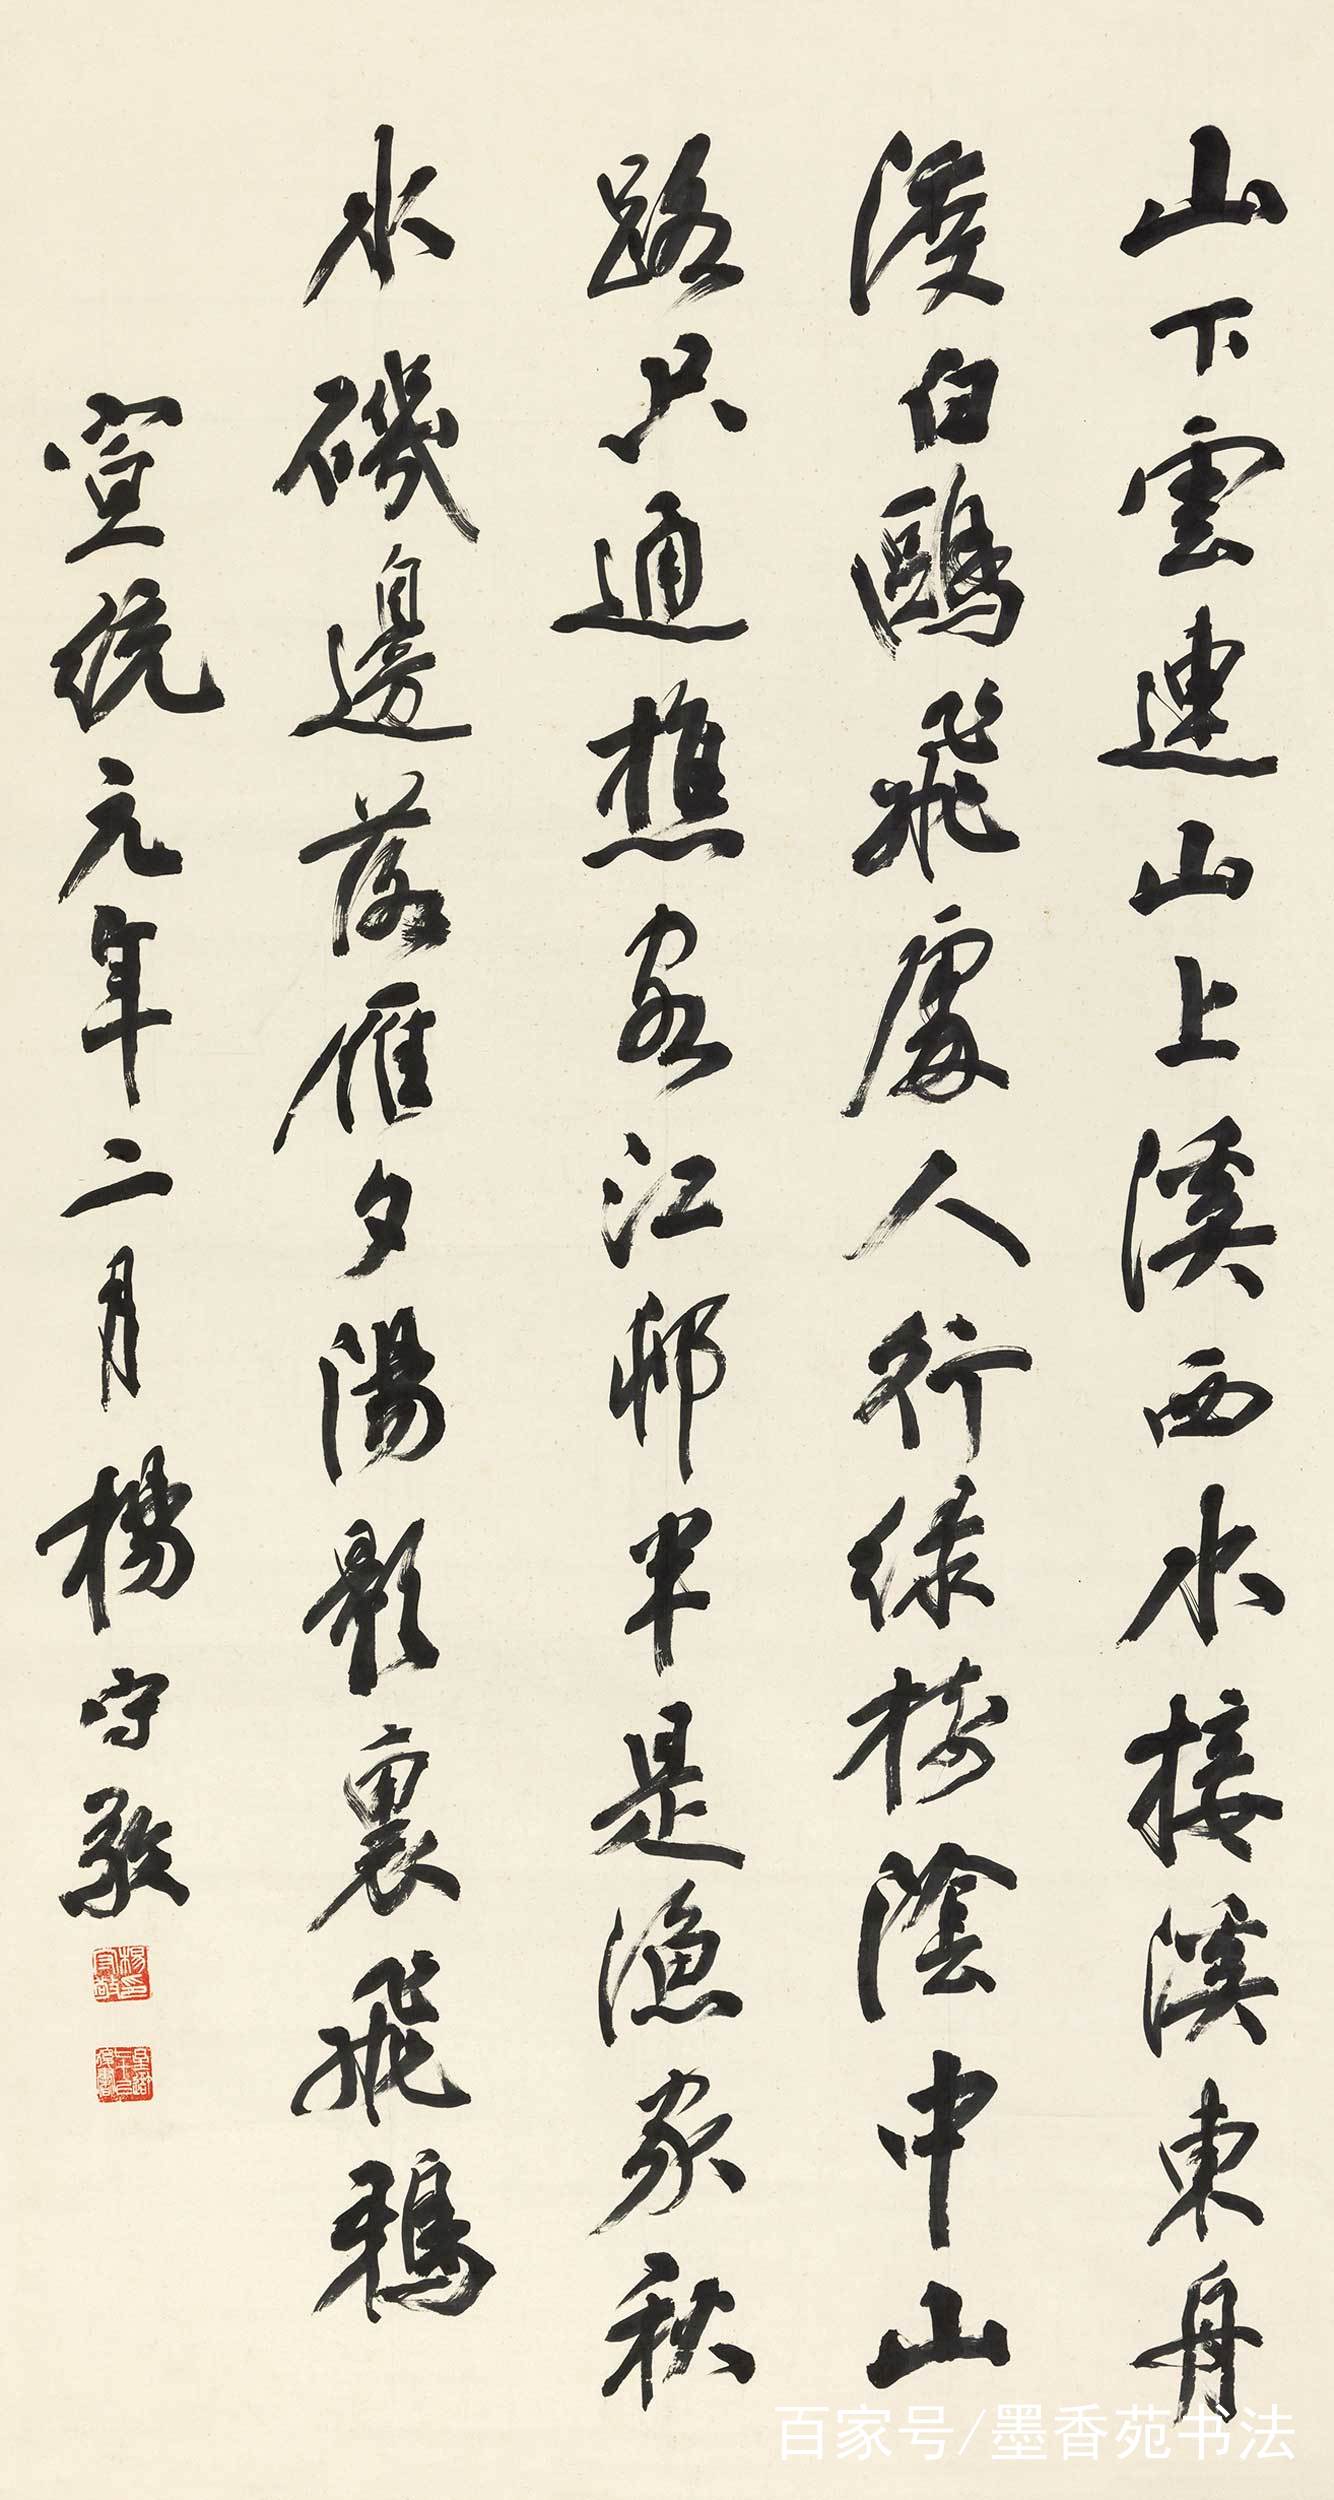 山下雲連山上溪西水接溪東舟
渡白鷗飛處人行綠樹陰中山
路只通樵客江邨半是漁家秋
水磯邊落雁夕陽影裏飛鴉
宣統元年二月楊守敬
楊守敬印
百家号/墨香苑书法